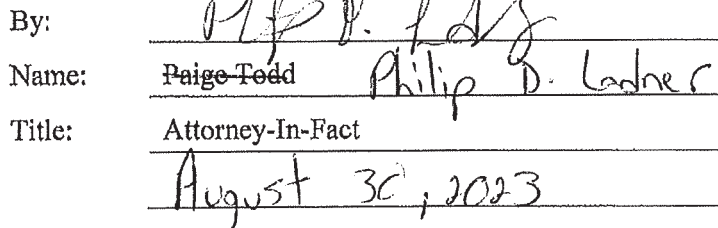 By:
Name: Paige Todd Philip D. Ladner
Title: Attorney-In-Fact
August 30, 2023